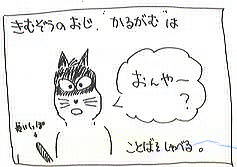 きむぞうのおじ、"かるがむ"は
おんやー
?
ぬいしっぽ
ことばをしゃべる。